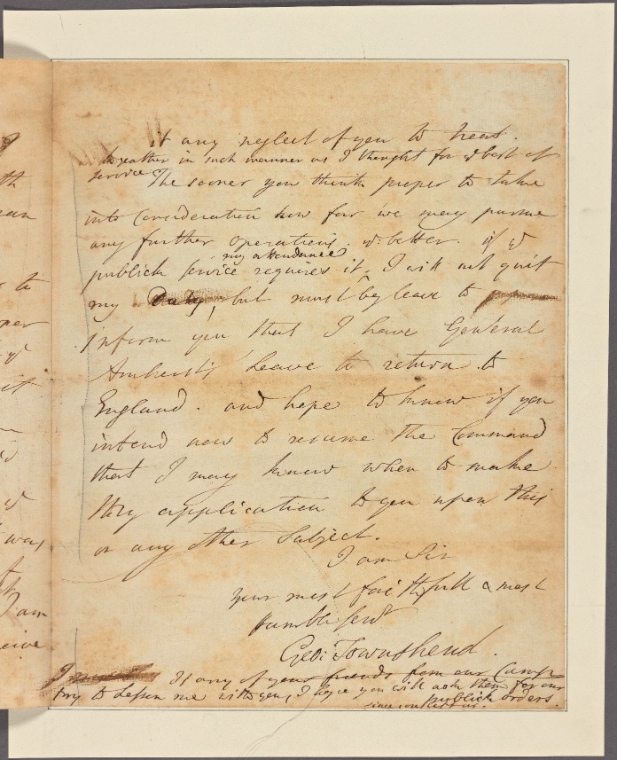 it any neglect of you to treat
together in such manner as I thought for ye best of
service The sooner you think proper to take
into Consideration how far we may pursue
any further operations. ye better. if ye
my attendance
publick service requires it, I will not quit
my Duty, but must beg leave to
inform you that I have General
Amherst's Leave to return to
England. and hope to know if you
intend now to resume the Command
that I may know when to make
My application to you upon this
or any other Subject.
I am Sir
your most faithfull & most
humble Servt
Geo: Townshend.
If any of your friends from our Camp
try to Lessen me with you, I hope you will ask them for our
publick orders.
since